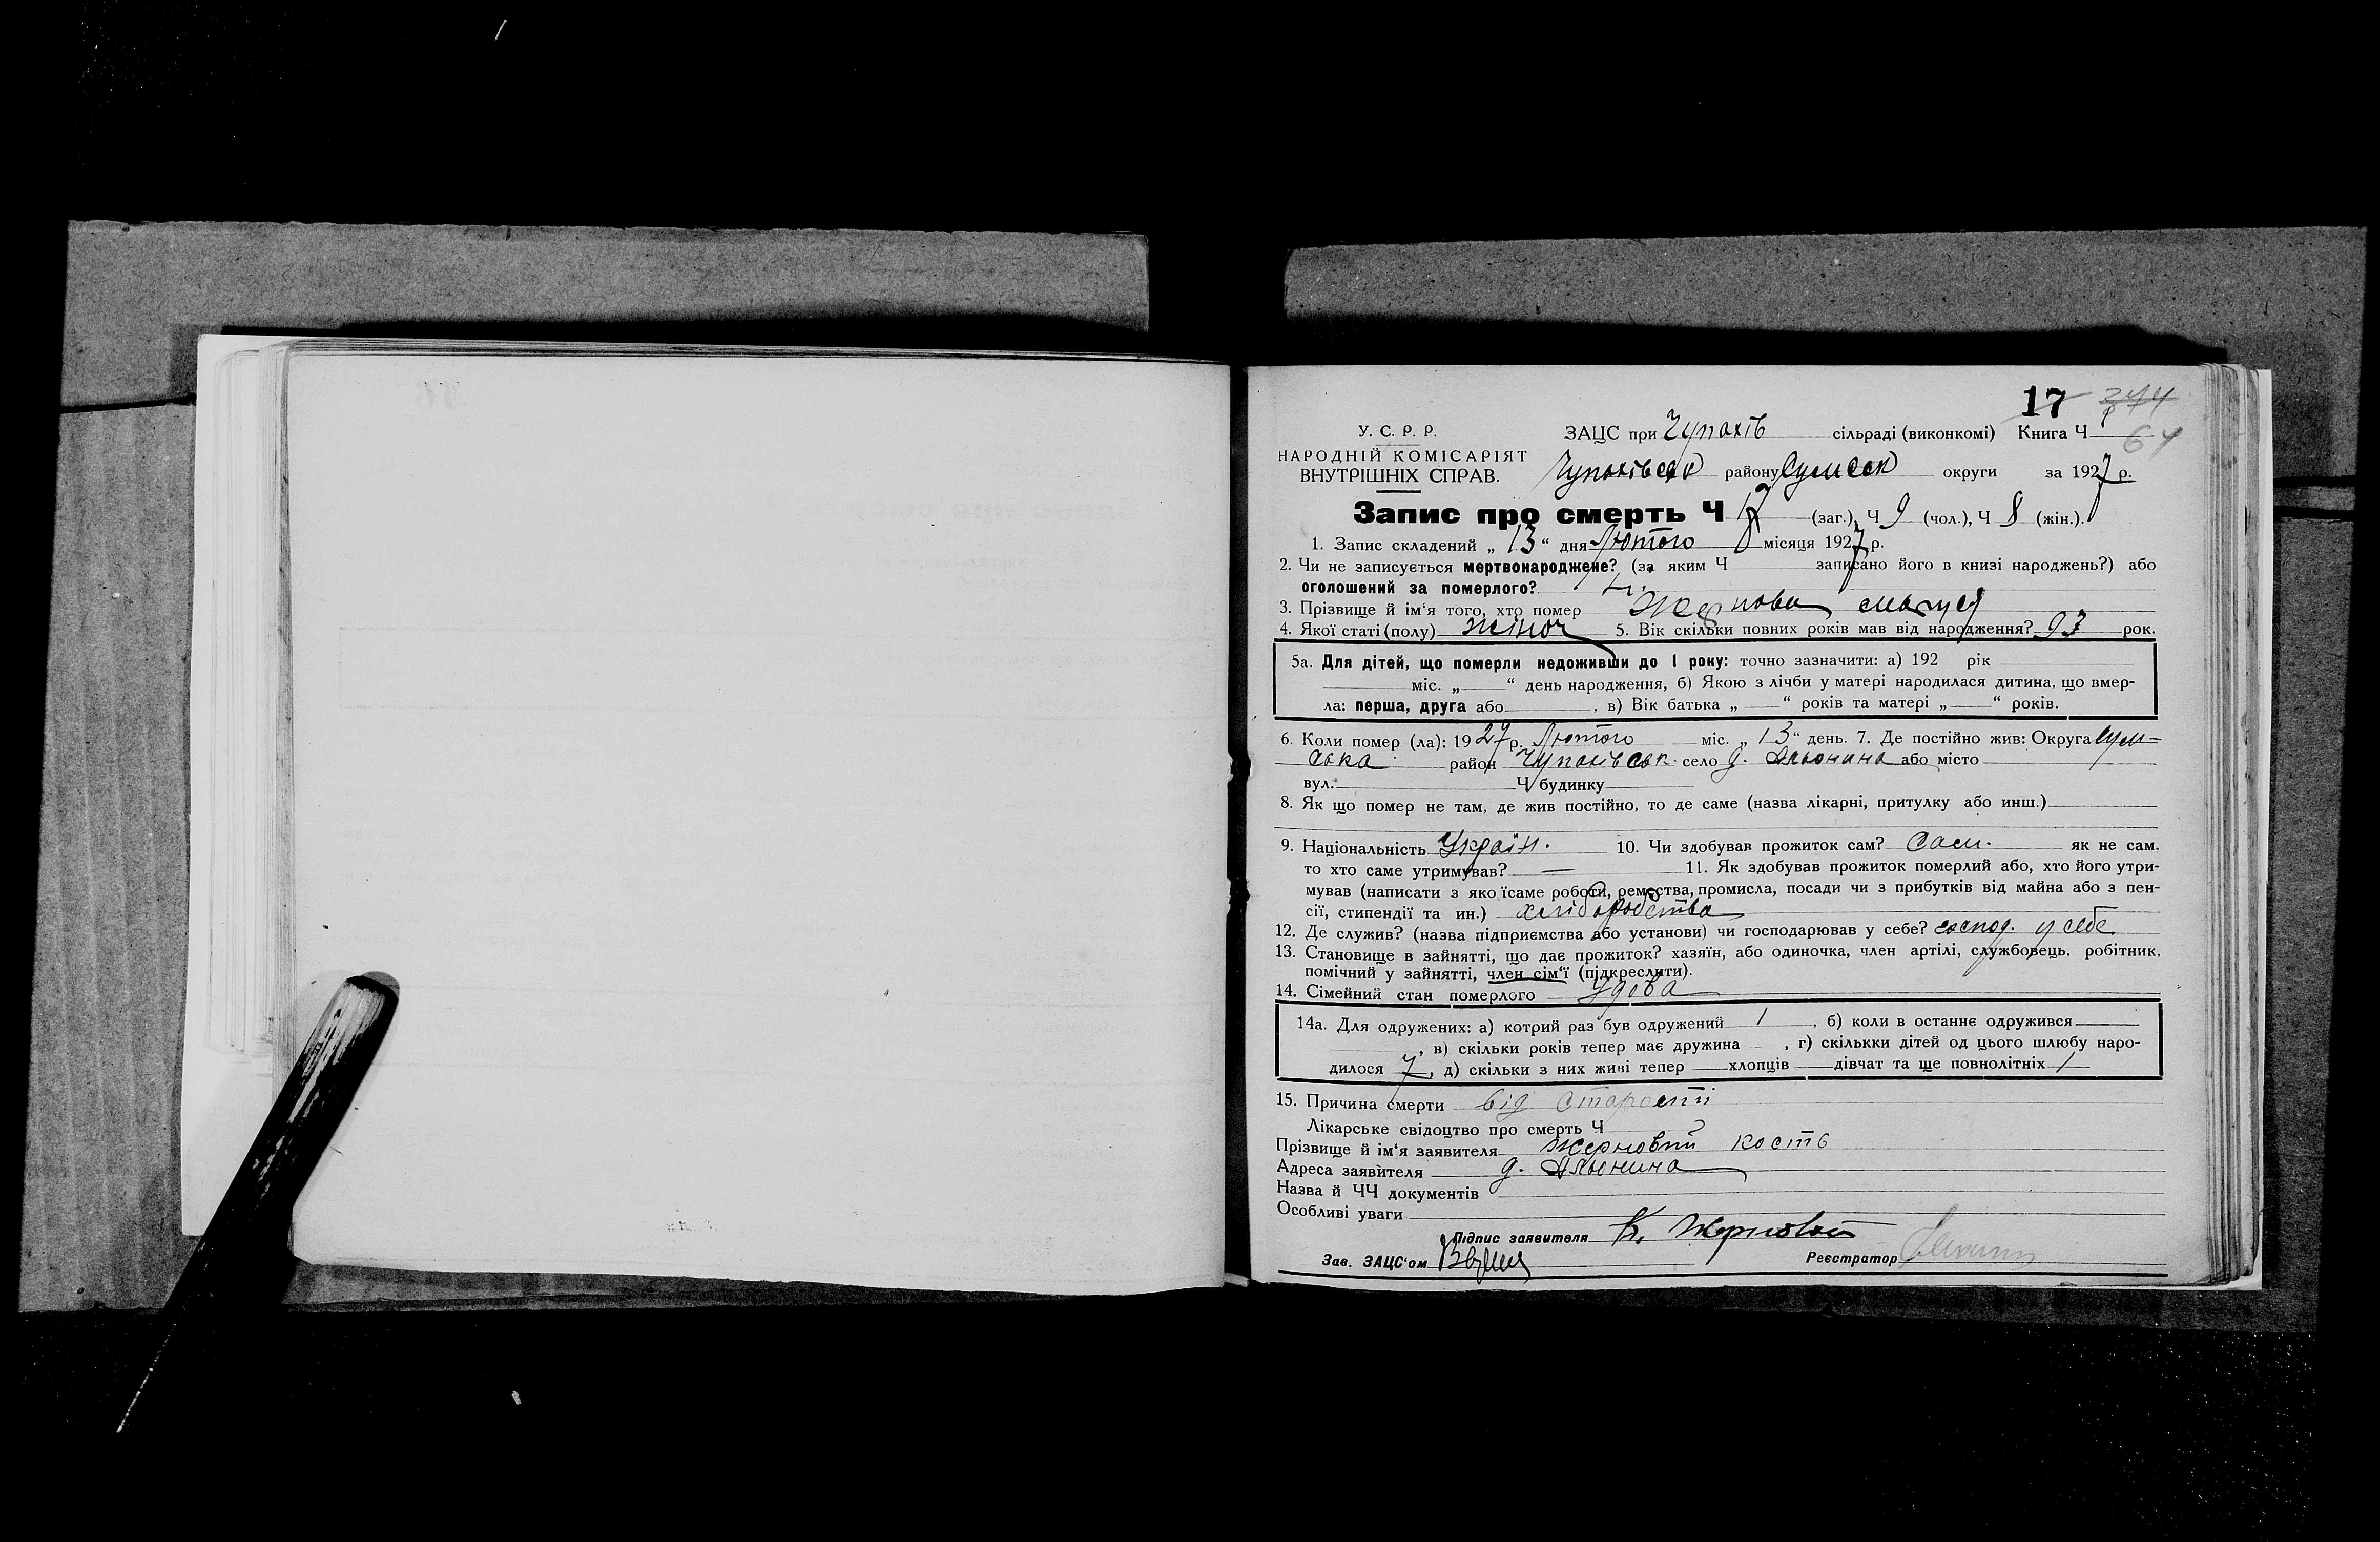 17 374
64
У. С. Р. Р. ЗАЦС при Чупахів сільраді (виконкомі) Книга Ч
НАРОДНІЙ КОМІСАРІЯТ
ВНУТРІШНІХ СПРАВ. Чупахівськ району Сумськ округи за 1927 р.
Запис про смерть Ч 17 (заг.), Ч 9 (чол.), Ч 8 (жін.).
1. Запис складений „ 13 “ дня Лютого місяця 1927 р.
2. Чи не записується мертвонароджене? (за яким Ч записано його в книзі народжень?) або
оголошений за померлого?
3. Прізвище й ім‘я того, хто помер Жернова
4. Якої статі (полу) жіноч 5. Вік скільки повних років мав від народження? 93 рок.
5а. Для дітей, що померли недоживши до 1 року: точно зазначити: а) 192 рік
міс. „ “ день народження, б) Якою з лічби у матері народилася дитина, що вмер-
ла: перша, друга або , в) Вік батька „ “ років та матері „ “ років.
6. Коли помер (ла): 1927 р. Лютого міс. „ 13 “ день. 7. Де постійно жив: Округа Сум=
ська район Чупахівськ. село д. Альонина або місто
вул. Ч будинку
8. Як що помер не там, де жив постійно, то де саме (назва лікарні, притулку або инш.)
9. Національність Україн. 10. Чи здобував прожиток сам? Сам. як не сам.
то хто саме утримував? — 11. Як здобував прожиток померлий або, хто його утри-
мував (написати з яко їсаме роботи, ремества, промисла, посади чи з прибутків від майна або з пен-
сії, стипендії та ин.) хліборобства
12. Де служив? (назва підприємства або установи) чи господарював у себе? господ. у себе
13. Становище в зайнятті, що дає прожиток? хазяїн, або одиночка, член артілі, службовець, робітник,
помічний у зайнятті, член сім‘ї (підкреслити).
14. Сімейний стан померлого Удова
14а. Для одружених: а) котрий раз був одружений 1 , б) коли в останнє одружився
, в) скільки років тепер має дружина , г) скількки дітей од цього шлюбу наро-
дилося 7 , д) скільки з них живі тепер хлопців дівчат та ще повнолітніх 1
15. Причина смерти від старости
Лікарське свідоцтво про смерть Ч
Прізвище й ім‘я заявителя Жерновий Кость
Адреса заявителя д. Альонина
Назва й ЧЧ документів
Особливі уваги
Підпис заявителя К. Жерновий
Зав. ЗАЦС‘ом Реєстратор